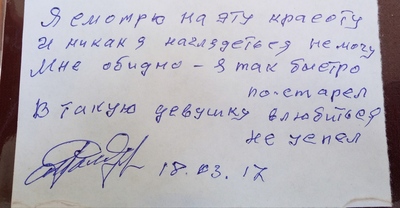 Я смотрю на эту красоту
И никак я наглядеться не могу
Мне обидно - я так быстро
по-старел
В такую девушку влюбиться
не успел
18.03.17